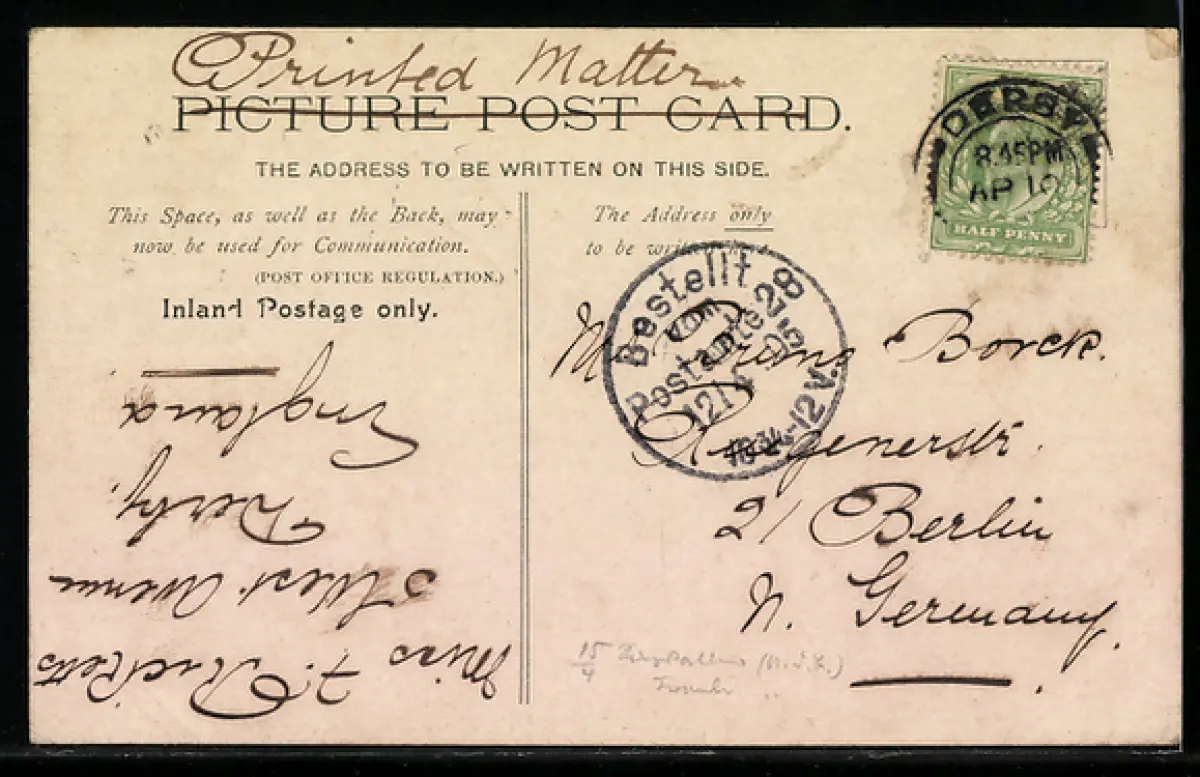 Printed Matter
PICTURE POST CARD.
THE ADDRESS TO BE WRITTEN ON THIS SIDE.
This Space, as well as the Back, may
now be used for Communication.
(POST OFFICE REGULATION.)
Inland Postage only.
The Address only
to be
DERBY
8.45PM
AP 10
HALF PENNY
Bestellt
vom
Postamte
12/4 05
28
-12 V.
Borck.
21 Berlin
N. Germany.
15/4
Miss F. Ricketts
5 West Avenue
Derby.
England